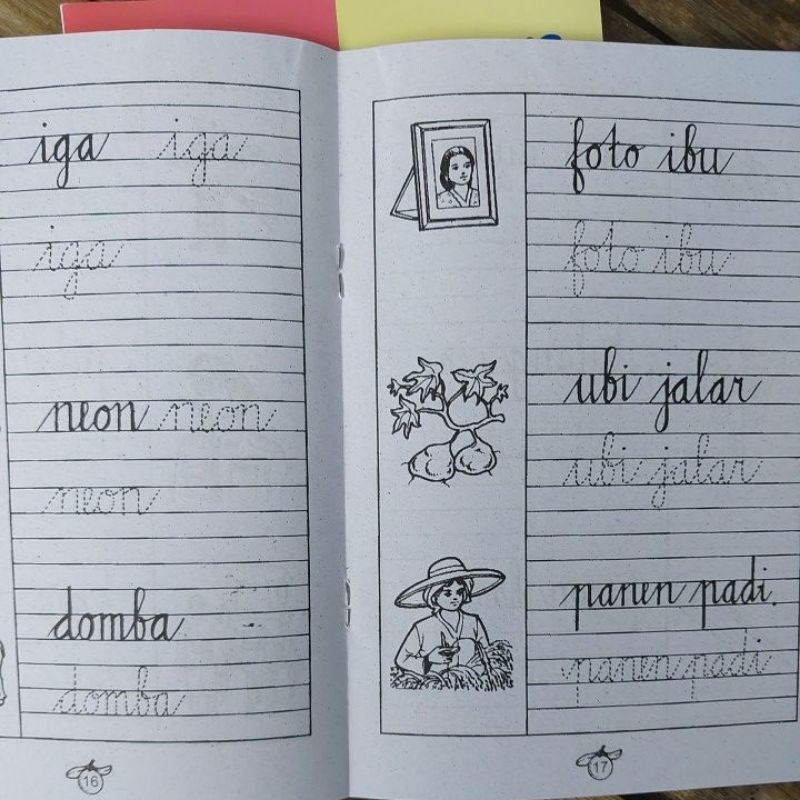 iga iga
iga
neon neon
neon
domba
domba
16
foto ibu
foto ibu
ubi jalar
ubi jalar
panen padi.
panen padi
17